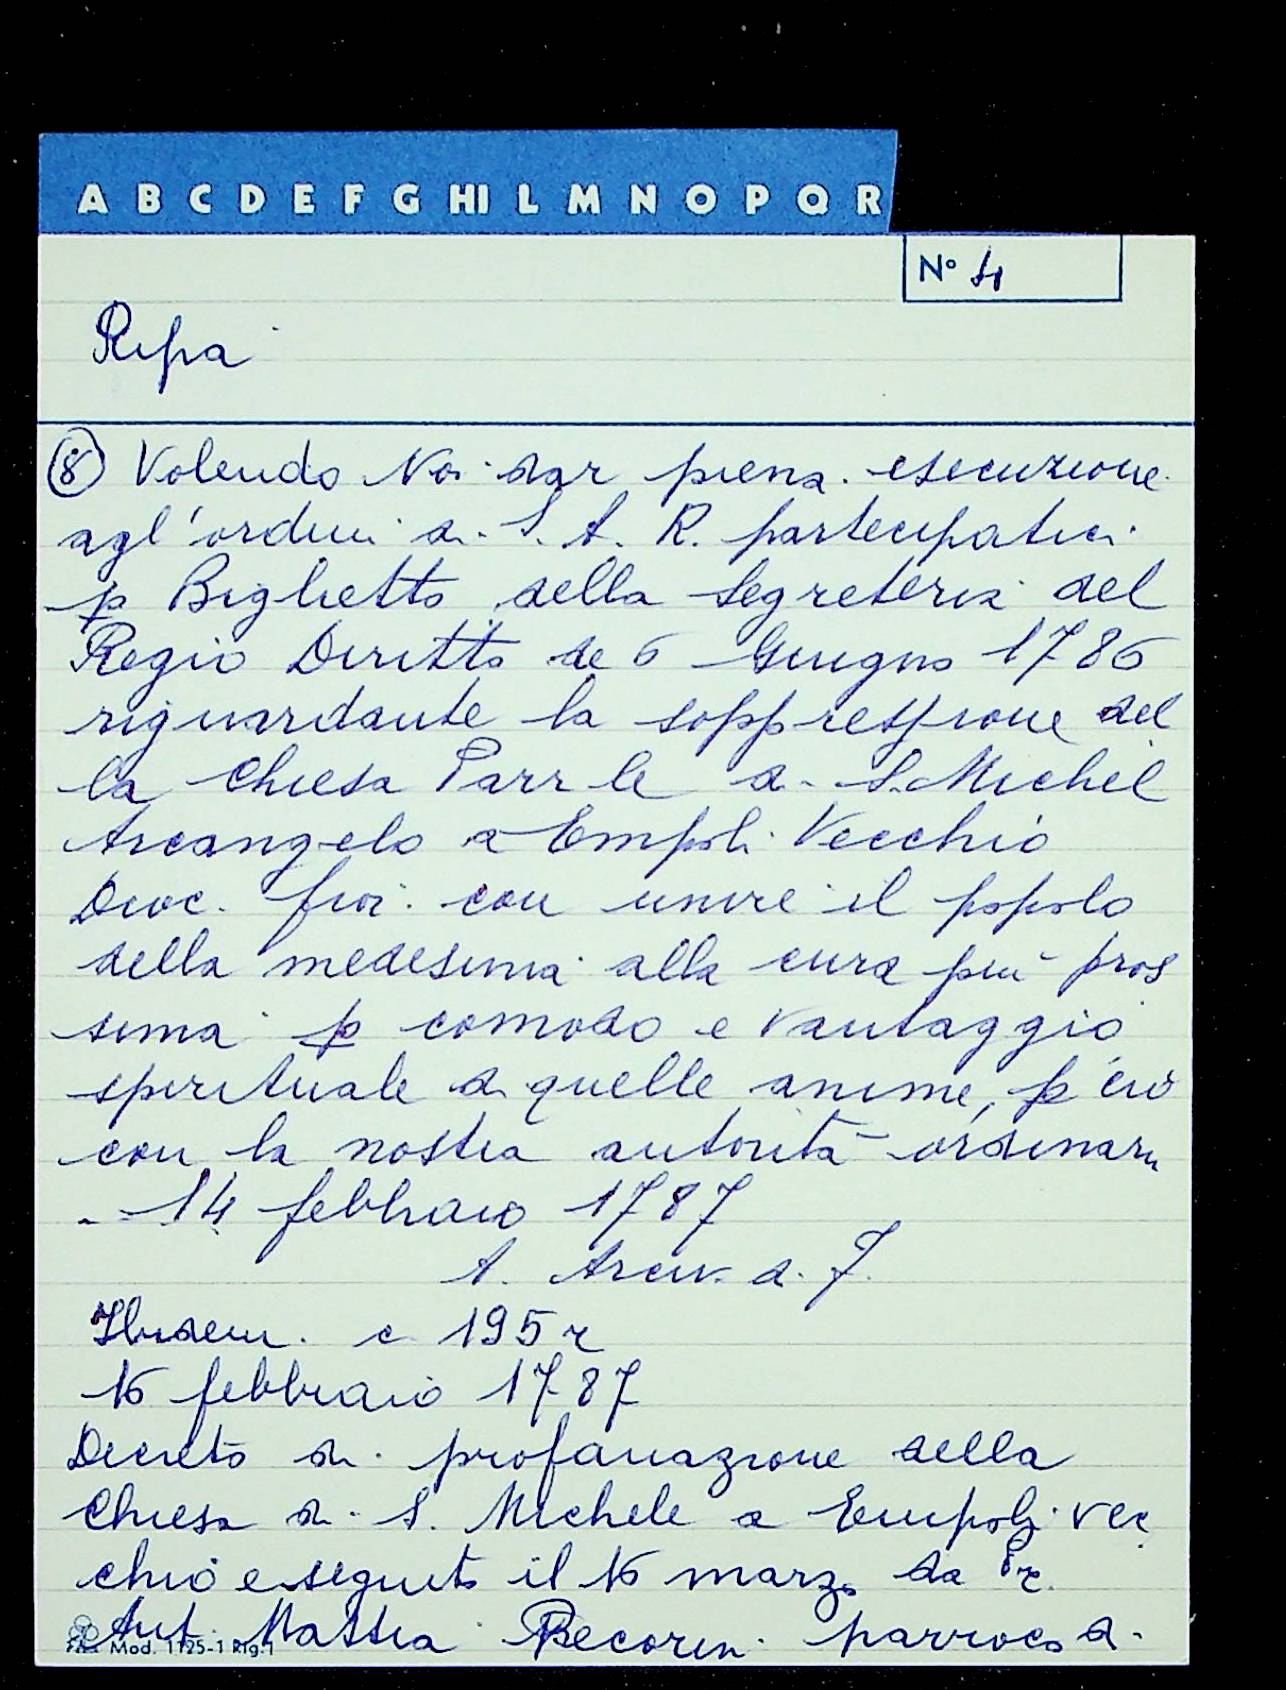 A B C D E F G HI L M N O P Q R
N° 4
Ripa
8 Volendo Noi dar piena esecuzione
agl'ordini di S. A. R. partecipatici
p Biglietto della Segreteria del
Regio Diritto de 6 Giugno 1786
riguardante la soppressione del
la Chiesa Parr le di S. Michel
Arcangelo a Empoli Vecchio
Dioc. fior. con unire il popolo
della medesima alla cura più pros
sima p comodo e vantaggio
spirituale di quelle anime, p ciò
con la nostra autorità ordinaria
14 febbraio 1787
A. Arciv. di F.
Ibidem. c 195 r
16 febbraio 1787
Decreto di profanazione della
Chiesa di S. Michele a Empoli Vec
chio eseguito il 16 marzo da Pr.
Ant. Mattia Becorin parroco di
Mod. 1125-1 Rig.1